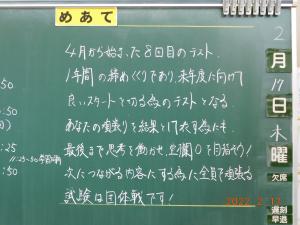 めあて
4月から始まった8回目のテスト.
1年間の締めくくりであり、来年度に向けて
良いスタートを切る為のテストとなる.
あなたの頑張りを結果として表す為にも
最後まで思考を働かせ、空欄0を目指そう!
次につながる内容にする為に全員で頑張る
試験は団体戦です!
:50
:25
11:25~50 学習
:50
2
月
17
日
木
曜
欠席
遅刻
早退
2022 2 17